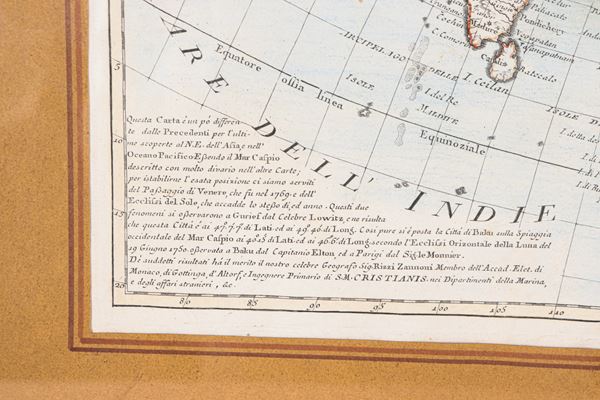 Paliacate
Pondichery
Cochin
Madure
C. Comorin
Candi
I. Ceilan
ARCIPELAGO
DELLE
ISOLE
I. del Re
MALDIVE
Equatore ossia linea
Equinoziale
MARE DELL' INDIE
Questa Carta è un pò differen-
te dalle Precedenti per l'ulti-
me scoperte al N.E. dell'Asia; nell'
Oceano Pacifico Essendo il Mar Caspio
descritto con molto divario nell'altre Carte;
per istabilirne l'esata posizione ci siamo serviti
del Passaggio di Venere, che fu nel 1769. e dell'
Ecclissi del Sole, che accadde lo stesso dì, ed anno. Questi due
fenomeni si osservarono a Gurief dal Celebre Lowitz, e ne risulta
che questa Città è ai 47°.7'.7" di Lati. ed ai 49°.46' di Long. Così pure si è posta la Città di Baku sulla Spiaggia
occidentale del Mar Caspio ai 40°.5' di Lati. ed ai 46°.6' di Long. secondo l'Ecclissi Orizontale della Luna del
19 Giugno 1750. osservata a Baku dal Capitanio Elton, ed a Parigi dal Sig. le Monnier.
Di suddetti risultati hà il merito il nostro celebre Geografo Sig. Rizzi Zannoni Membro dell'Accad. Elet. di
Monaco, di Gottinga, d'Altorf, e Ingegnere Primario di S.M. CRISTIANIS. nei Dipartimenti della Marina,
e degli affari stranieri, &c.
5
10
15
20
85
90
95
100
105
110